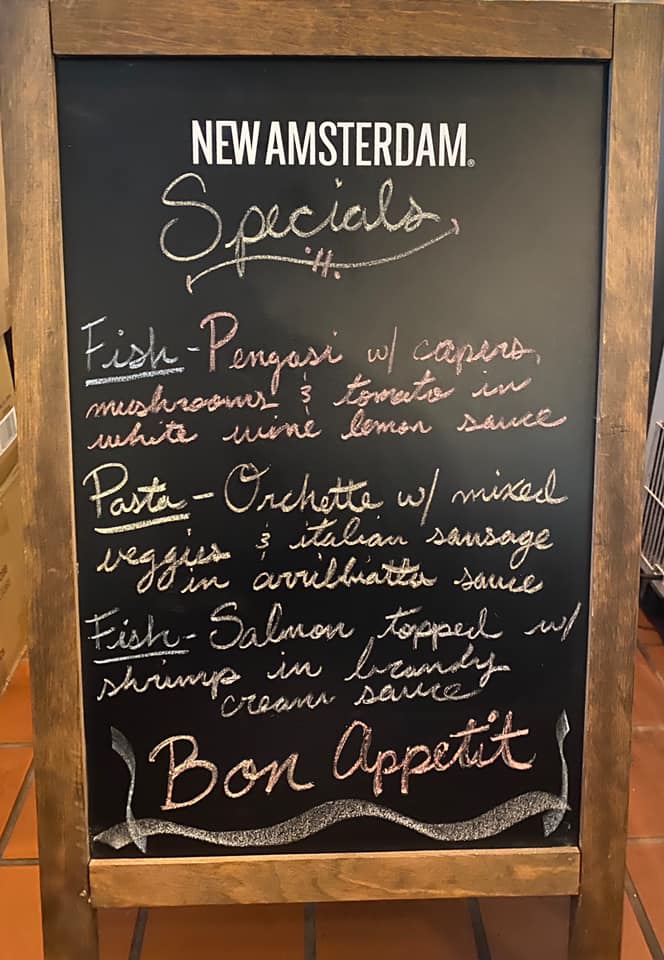 NEW AMSTERDAM®
Specials
Fish - Pengasi w/ capers,
mushrooms & tomato in
white wine lemon sauce
Pasta - Orchette w/ mixed
veggies & italian sausage
in arrilbiatta sauce
Fish - Salmon topped w/
shrimp in brandy
cream sauce
Bon Appetit